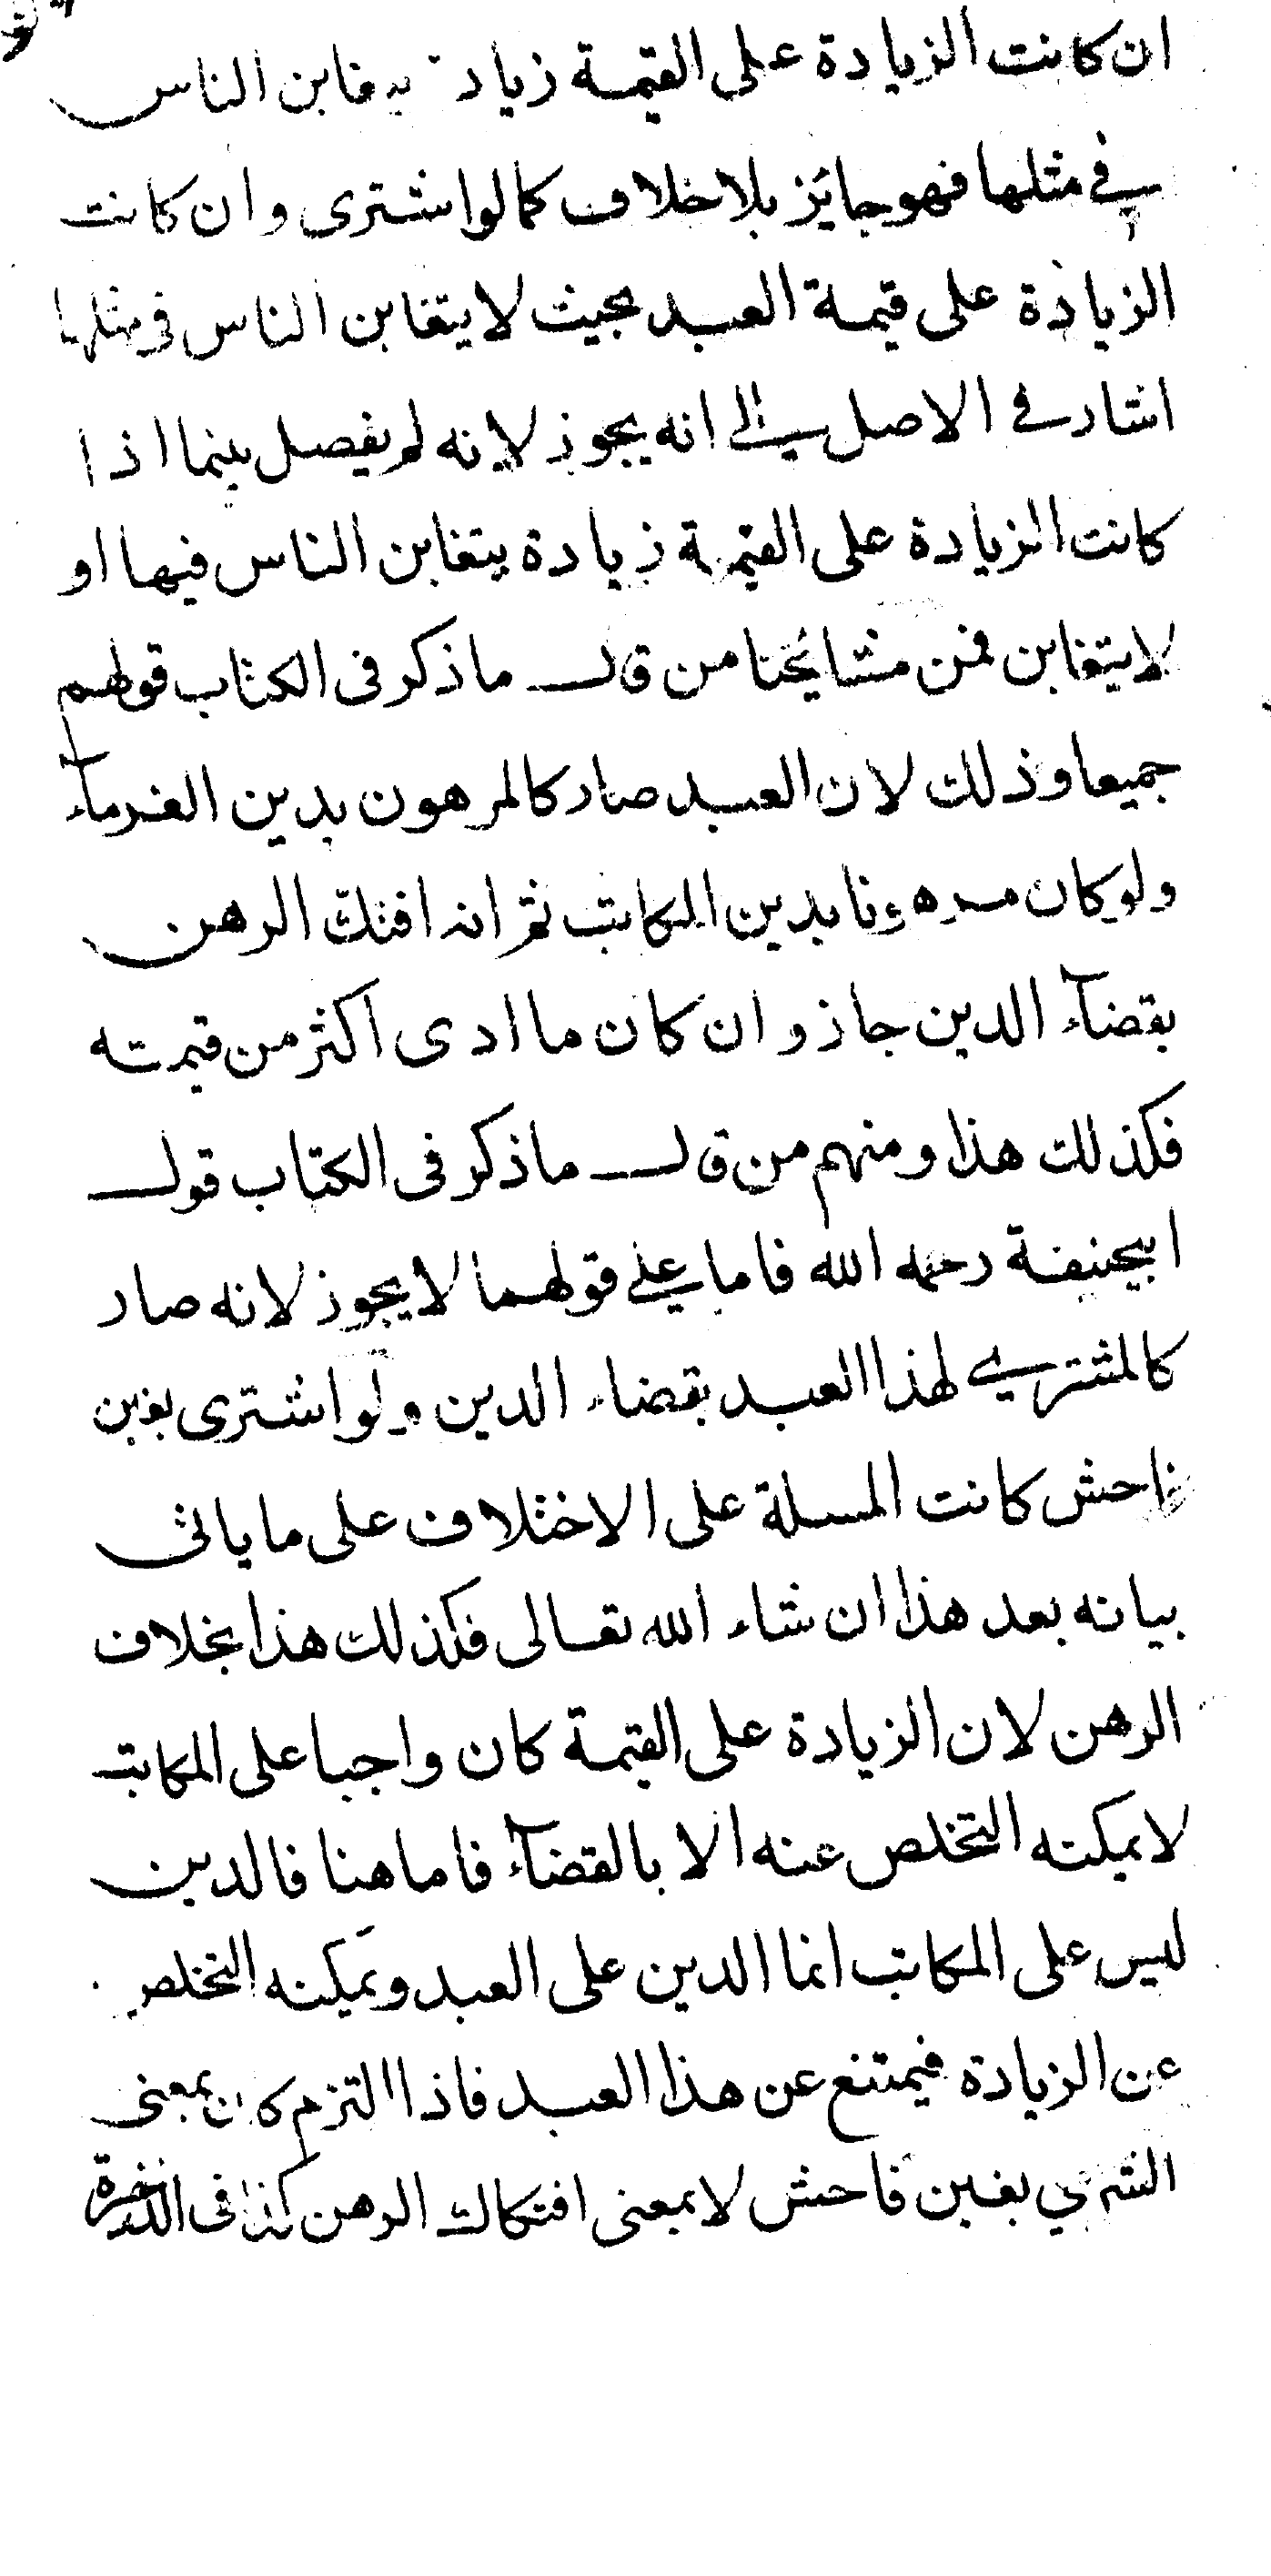 ان كانت الزيادة على القيمة زيادة يتغابن الناس
في مثلها فهو جايز بلا خلاف كما لو اشترى وان كانت
الزيادة على قيمة العبد بحيث لا يتغابن الناس في مثلها
اشار في الاصل الى انه يجوز لانه لم يفصل بينما اذا
كانت الزيادة على القيمة زيادة يتغابن الناس فيها او
لا يتغابن فمن مشايخنا من قال ما ذكر في الكتاب قولهم
جميعا وذلك لان العبد صار كالمرهون بدين الغرمآء
ولو كان مرهونا بدين المكاتب ثم انه افتك الرهن
بقضآء الدين جاز وان كان ما ادى اكثر من قيمته
فكذلك هذا ومنهم من قال ما ذكر في الكتاب قول
ابيحنيفة رحمه الله فاما على قولهما لا يجوز لانه صار
كالمشتري لهذا العبد بقضاء الدين ولو اشترى بغبن
فاحش كانت المسلة على الاختلاف على ما ياتى
بيانه بعد هذا ان شاء الله تعالى فكذلك هذا بخلاف
الرهن لان الزيادة على القيمة كان واجبا على المكاتب
لا يمكنه التخلص عنه الا بالقضآء فاما هنا فالدين
ليس على المكاتب انما الدين على العبد ويمكنه التخلص
عن الزيادة فيمتنع عن هذا العبد فاذا التزم كان بمعنى
الشري بغبن فاحش لا بمعنى افتكاك الرهن كذا في الذخيرة